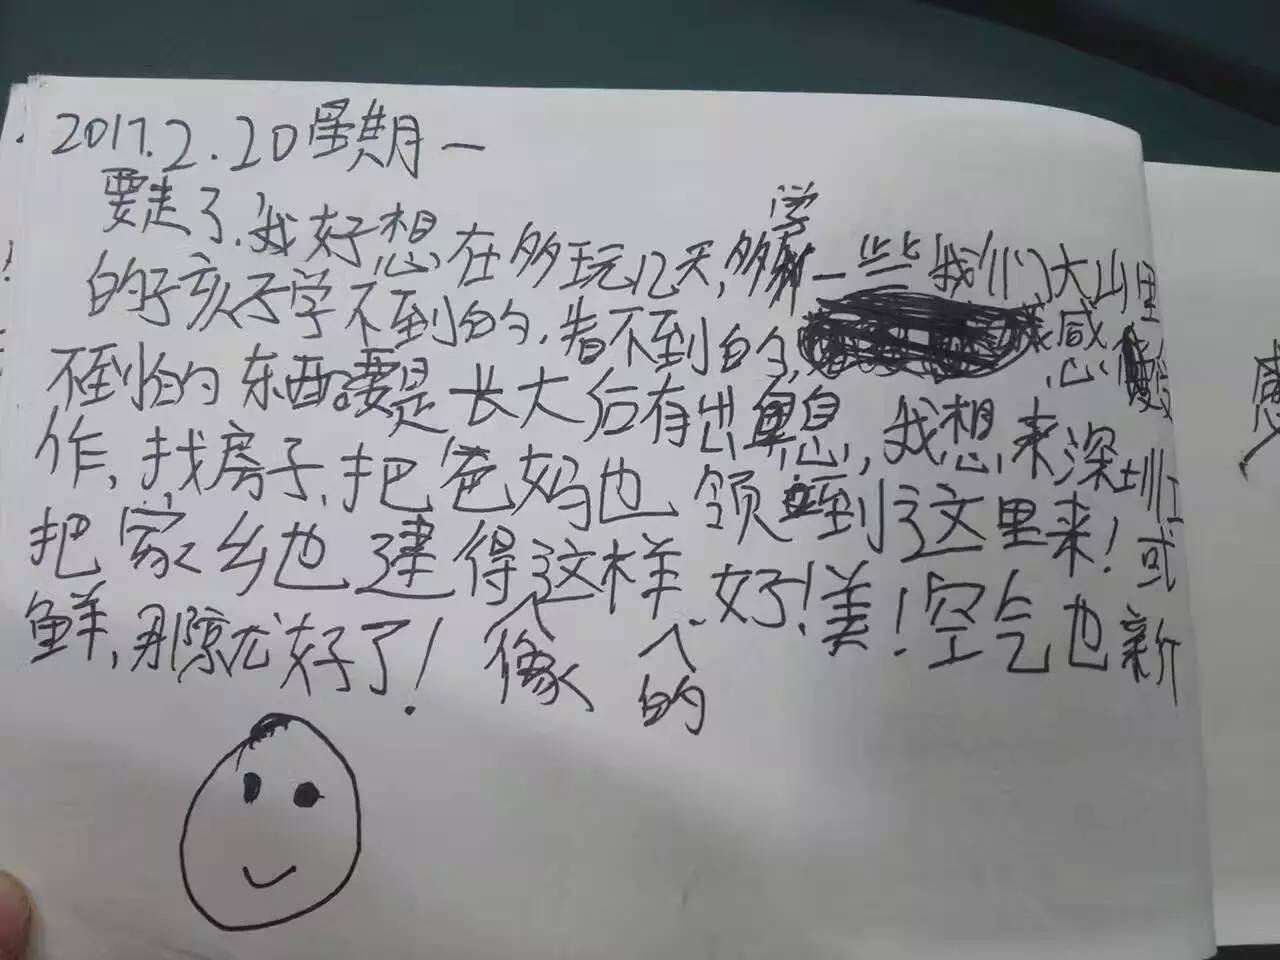 2017.2.20星期一
要走了,我好想在多玩几天,多学一些我们大山里
的孩子学不到的,看不到的,感受
不到的东西。要是长大后有出息,我想来深圳工
作,找房子,把爸妈也领到这里来!或
把家乡也建得像这样的好!美!空气也新
鲜,那就好了!
感